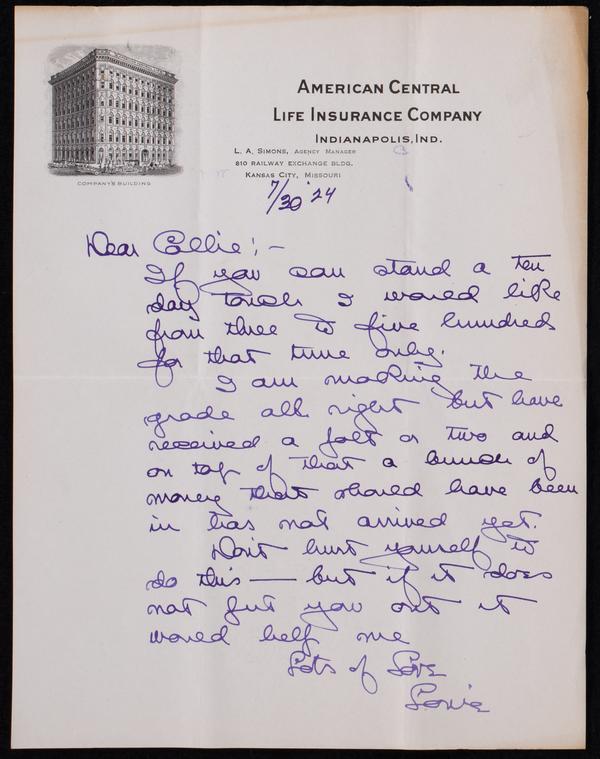 AMERICAN CENTRAL
LIFE INSURANCE COMPANY
INDIANAPOLIS, IND.
L. A. SIMONS, AGENCY MANAGER
810 RAILWAY EXCHANGE BLDG.
KANSAS CITY, MISSOURI
COMPANY'S BUILDING
7/30 '24
Dear Collie:-
If you can stand a ten
day touch I would like
from three to five hundred
for that time only.
I am making the
grade all right but have
received a jolt or two and
on top of that a bunch of
money that should have been
in has not arrived yet.
Don't hurt yourself to
do this — but if it does
not put you out it
would help me
Lots of Love
Louie